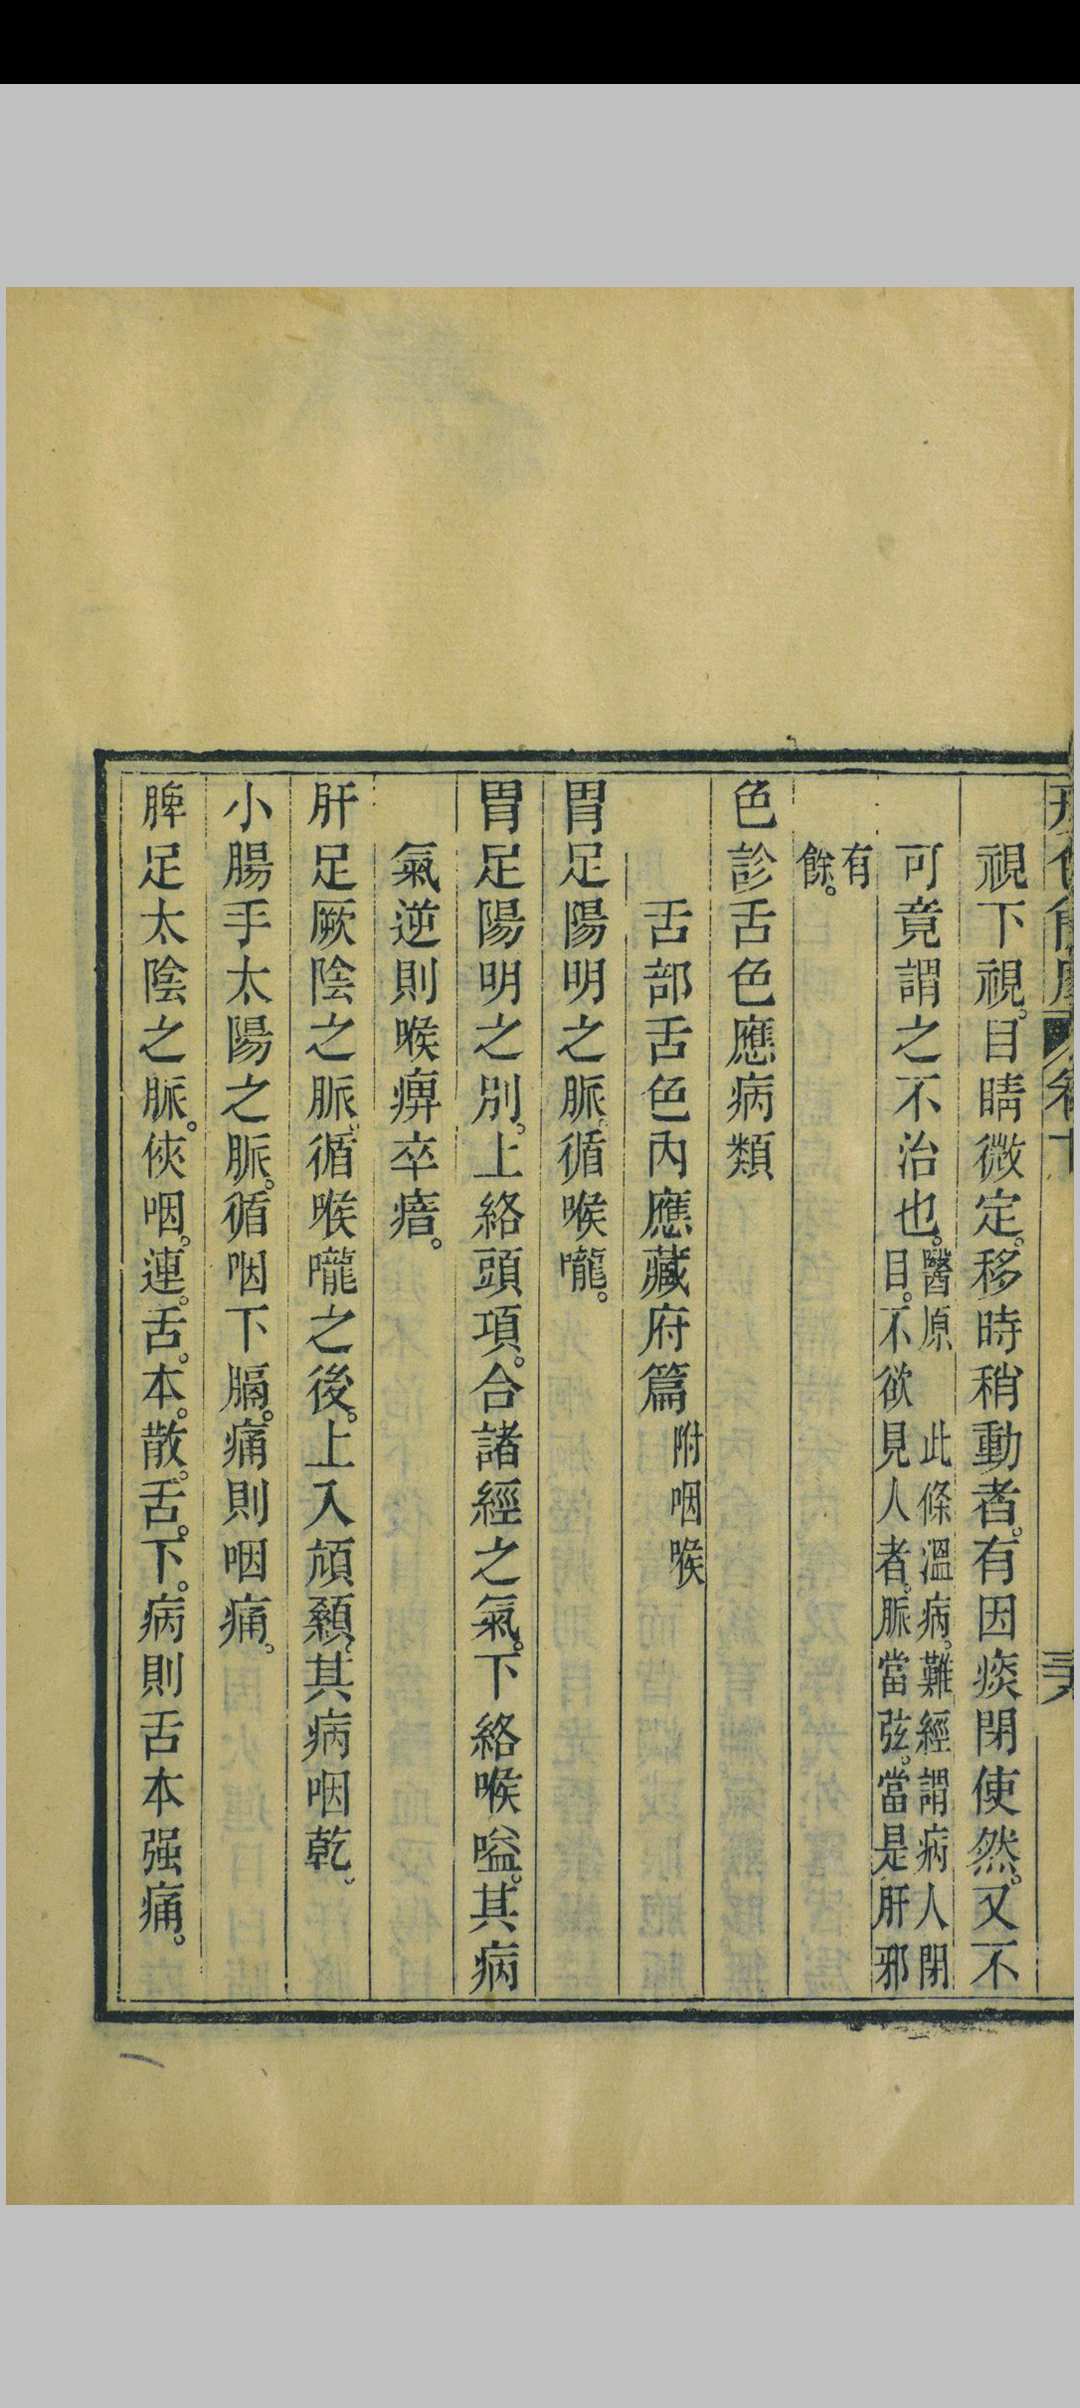 視下視。目睛微定。移時稍動者。有因痰閉使然。又不
可竟謂之不治也。醫原 此條溫病。難經謂病人閉
目。不欲見人者。脈當弦。當是肝邪
有
餘。
色診舌色應病類
舌部舌色內應藏府篇附咽喉
胃足陽明之脈。循喉嚨。
胃足陽明之別。上絡頭項。合諸經之氣。下絡喉嗌。其病
氣逆則喉痺卒瘖。
肝足厥陰之脈。循喉嚨之後。上入頏顙。其病咽乾。
小腸手太陽之脈。循咽下膈。痛則咽痛。
脾足太陰之脈。俠咽。連。舌。本。散。舌。下。病則舌本强痛。